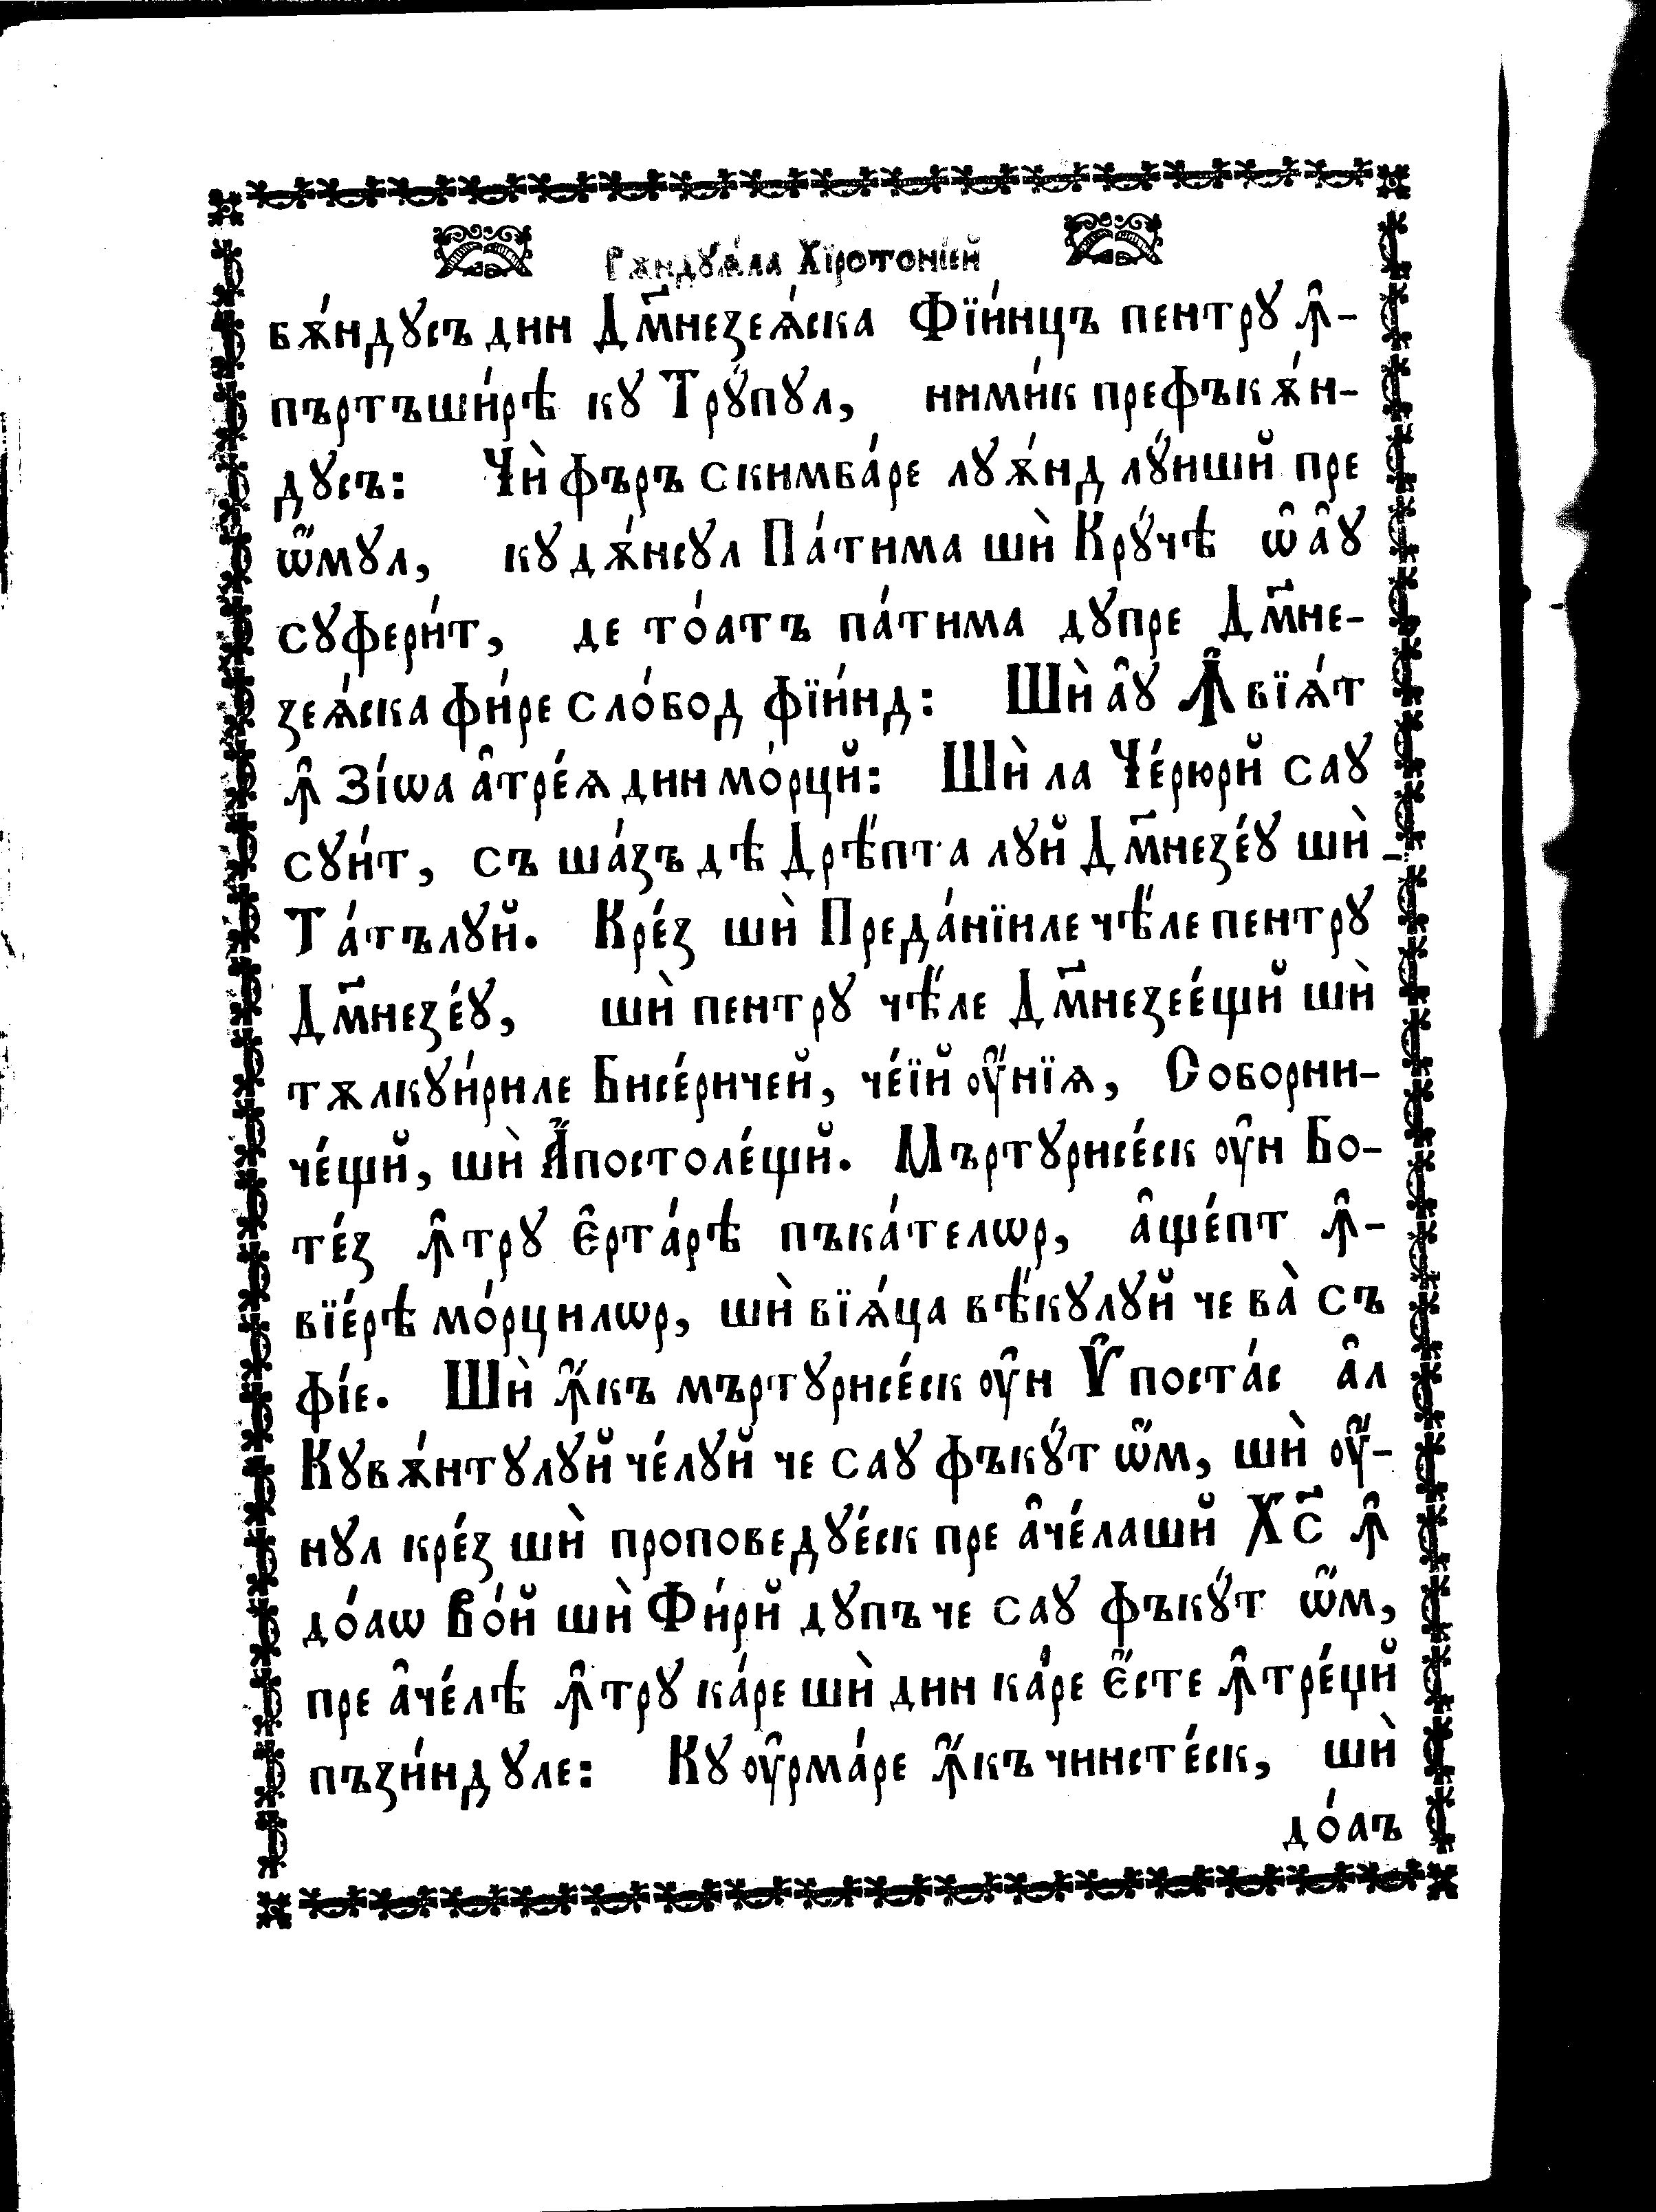 Рѫндуѧ́ла Хїротонїей
бѫ́ндусъ дин Дм҃незеѧ́ска Фїи́нцъ пентру ꙟ҆̑-
пъртъши́рѣ ку Тру́пул, ними́к префъкѫ́н-
дусъ: Чѝ фъръ скимба́ре луѫ́нд лу́иший пре
ѡ҆́мул, ку дѫ́нсул Па́тима шѝ Кру́чѣ ѡ҆̑ а҆̑у
сꙋфери́т, де то́атъ па́тима дупре Дм҃не-
зеѧ́ска фи́ре сло́бод фїи́нд: Шѝ а҆̑у Ꙟ҆̑вїѧ́т
ꙟ҆̑ Зі́ѡа а҆̑тре́ѧ дин мо́рций: Шѝ ла Че́рюрй сау
суи́т, съ ша́зъ дѣ Дрѣ́пта луй Дм҃незе́у шѝ
Та́тълуй. Кре́з шѝ Преда́нїиле чѣ́ле пентру
Дм҃незе́у, шѝ пентру чѣ́ле Дм҃незее́щй шѝ
тѫлкуи́риле Бисе́ричей, че́їй оу҆́нїѧ, Соборни-
че́щй, шѝ А҆́постоле́щй. Мъртурисе́ск оу҆̑н Бо-
те́з ꙟ҆̑тру Є҆̑рта́рѣ пъка́телѡр, а҆̑ще́пт ꙟ҆̑-
вїе́рѣ мо́рцилѡр, шѝ вїѧ́ца вѣ́кулуй че ва̀ съ
фі́е. Шѝ ꙟ҆́къ мъртурисе́ск оу҆̑н Ѵ҆̑поста́с а҆̑л
Кувѫ́нтулуй че́луй че сау фъку́т ѡ҆́м, шѝ оу҆́-
нул кре́з шѝ проповедуе́ск пре а҆̑че́лаший Хс҃ ꙟ҆̑
до́аѡ Во́й шѝ Фи́рй дупъ че сау фъку́т ѡ҆́м,
пре а҆̑че́лѣ ꙟ҆̑тру ка́ре шѝ дин ка́ре є҆́сте ꙟ҆̑тре́џй
пъзи́ндуле: Ку оу҆̑рма́ре ꙟ҆́къ чинсте́ск, шѝ
до́аъ